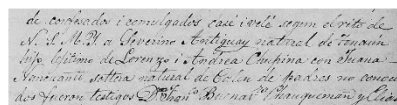 de confesados i comulgados casé i velé segun el rito de
N. S. M. Y. a Severino Antiguay natural de Tonaum
hijo lejitimo de Lorenzo i Andrea Chuhina con Juana
Nancuanti soltera natural de Colen de padres no conoci
dos fueron testigos Dn Franco Bernar Chauqueman y Clias